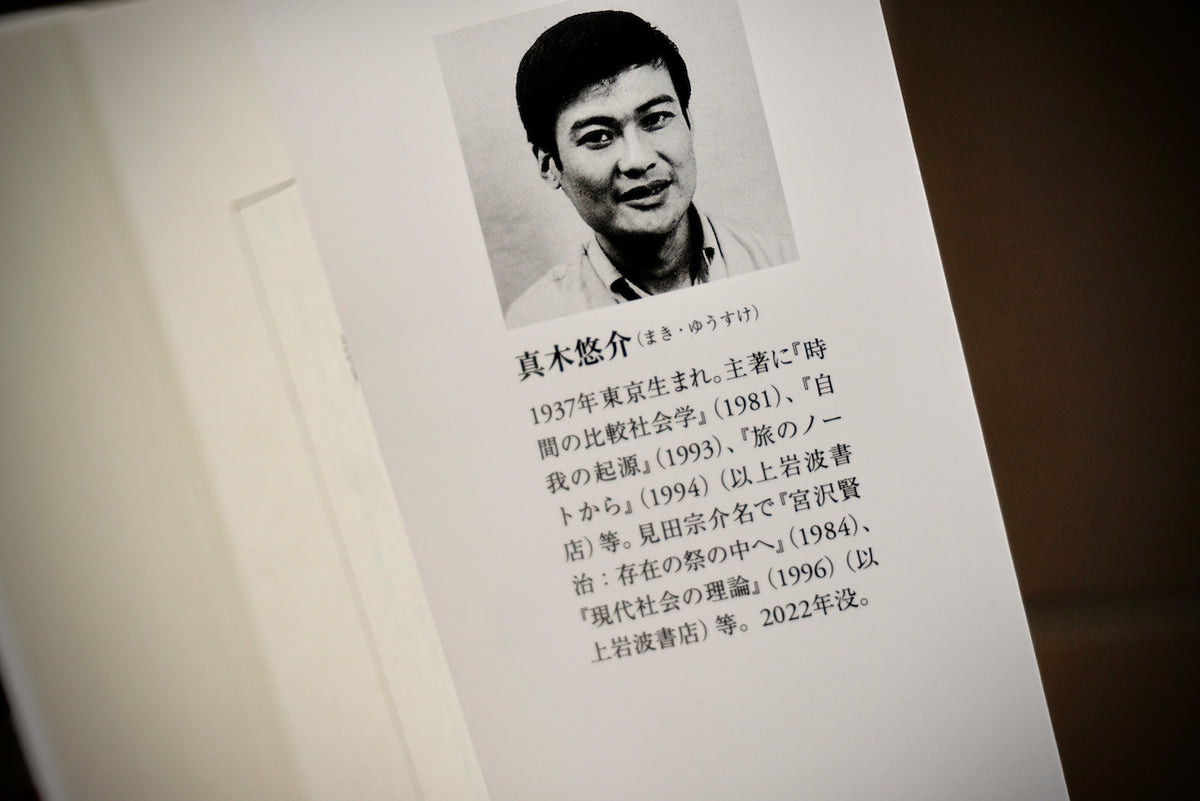 真木悠介(まき・ゆうすけ)
1937年東京生まれ。主著に『時
間の比較社会学』(1981)、『自
我の起源』(1993)、『旅のノー
トから』(1994)(以上岩波書
店)等。見田宗介名で『宮沢賢
治:存在の祭の中へ』(1984)、
『現代社会の理論』(1996)(以
上岩波書店)等。2022年没。